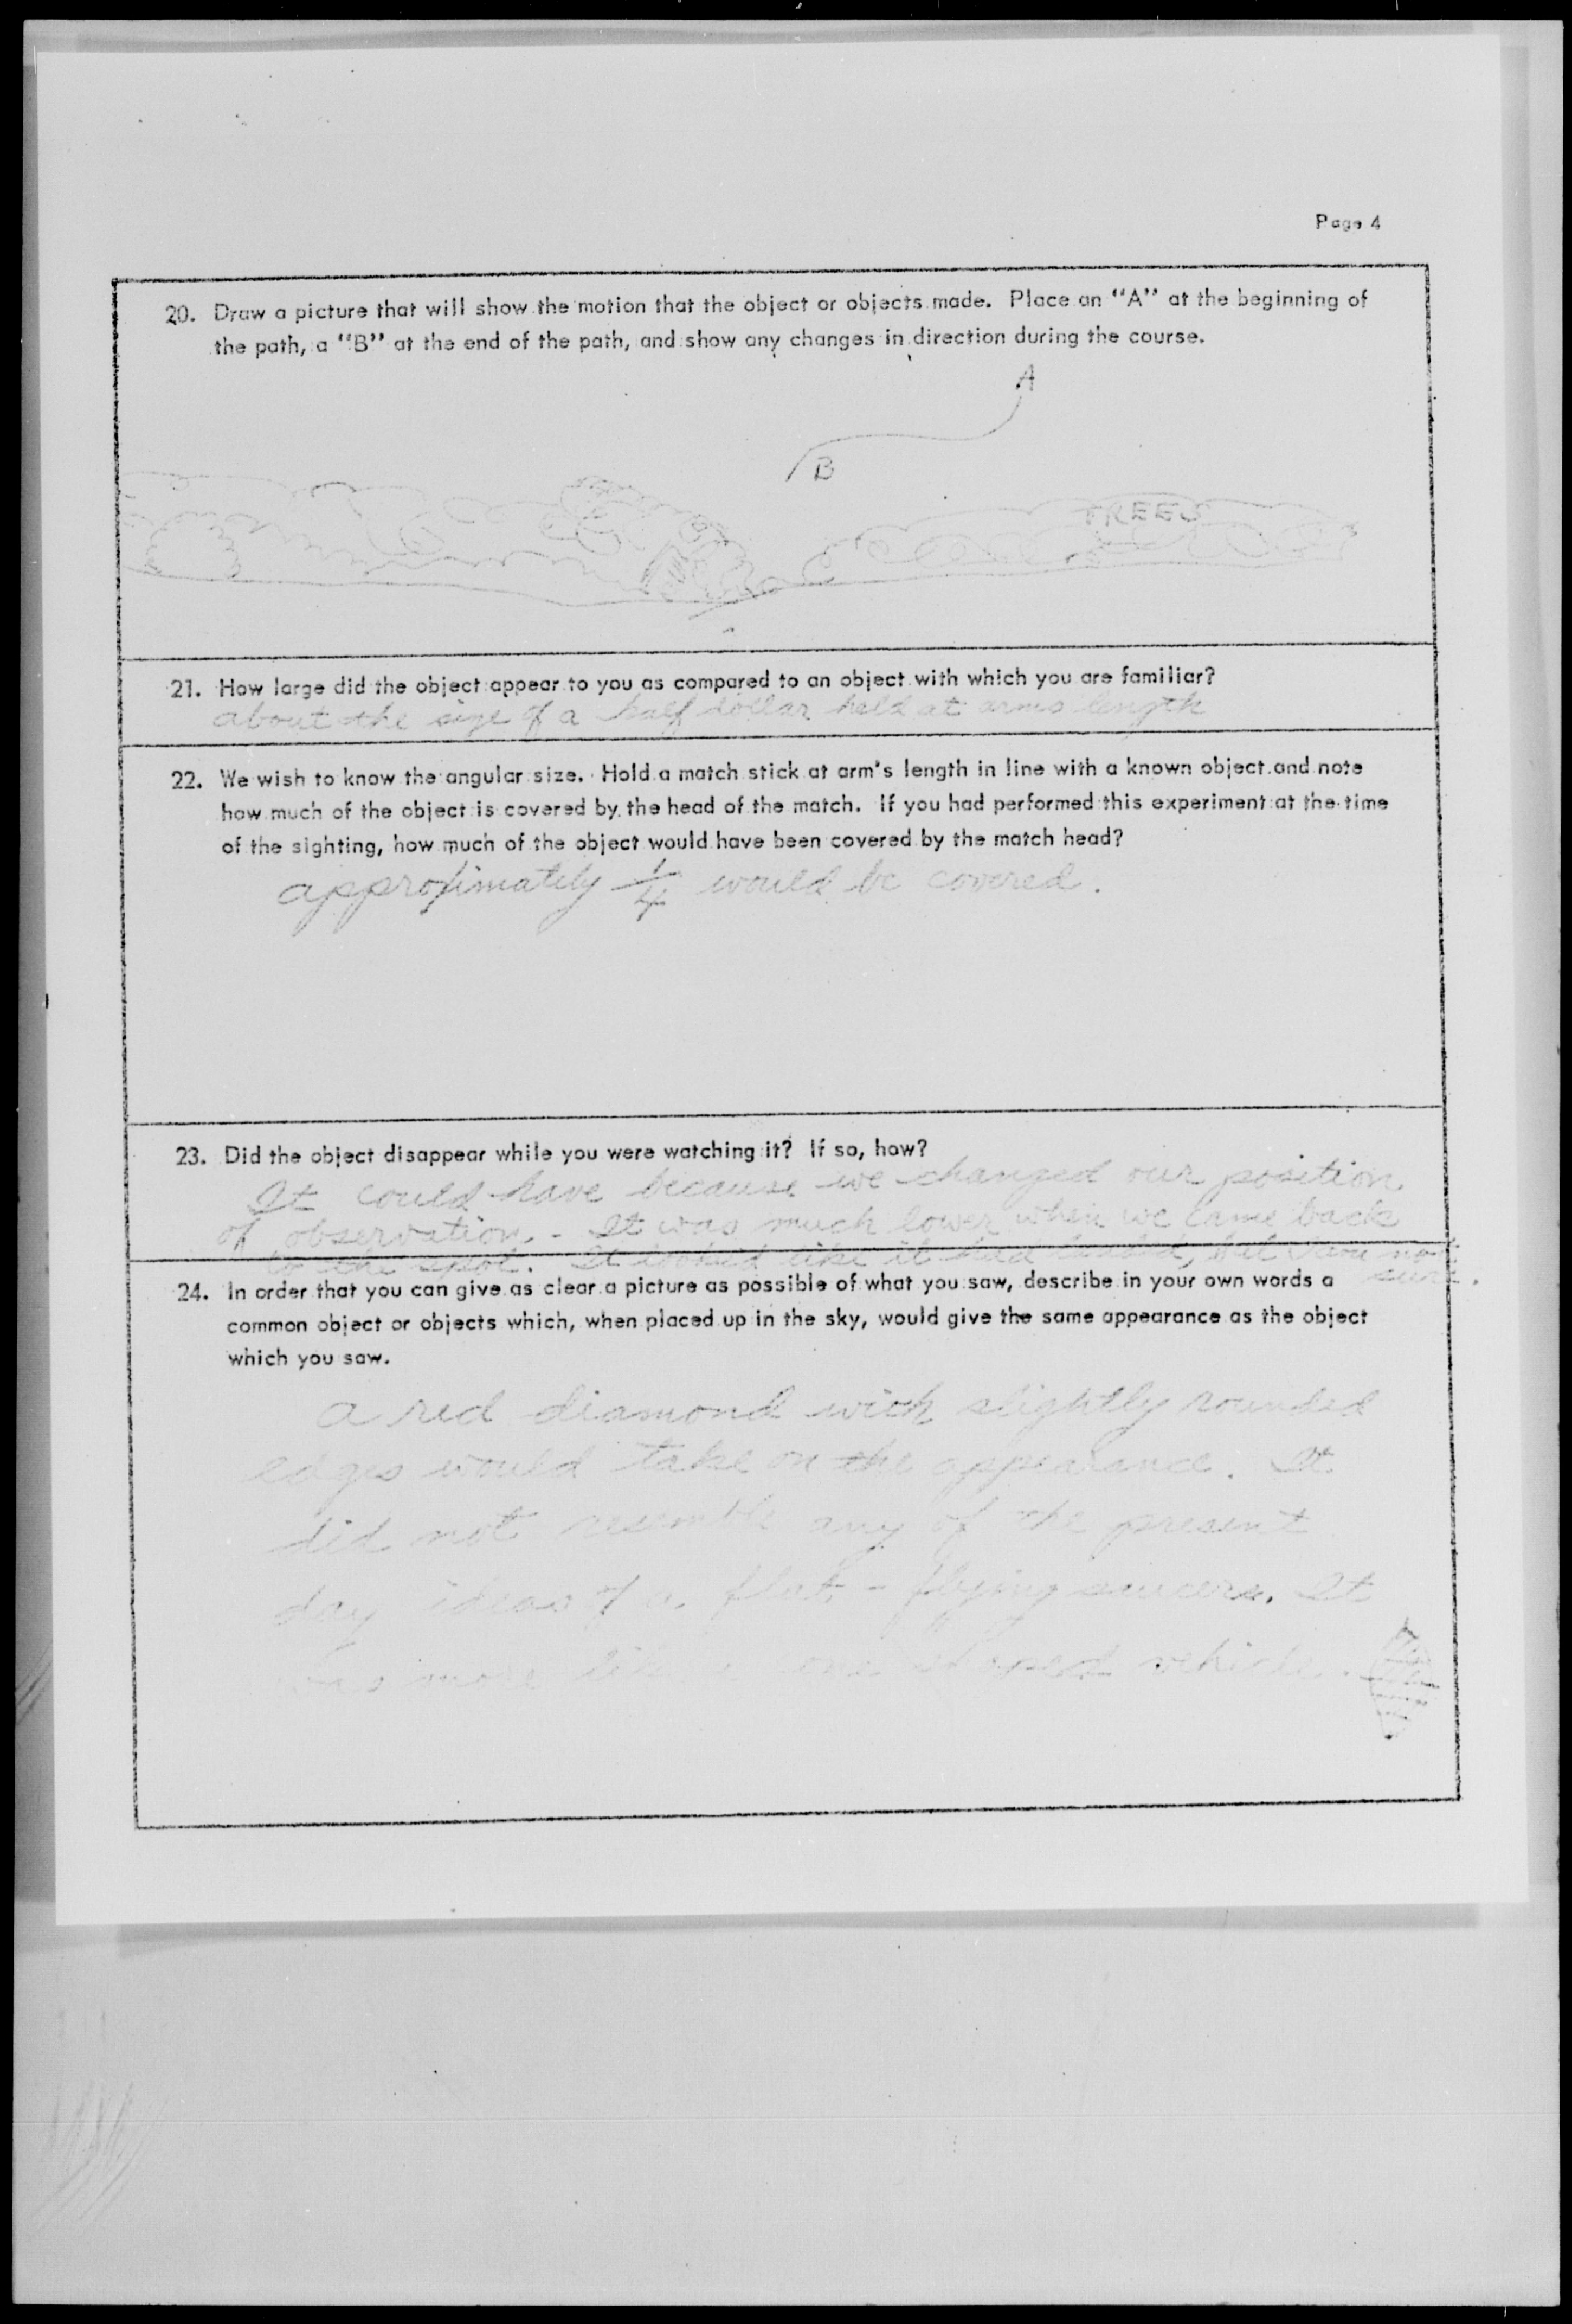 Page 4
20. Draw a picture that will show the motion that the object or objects made. Place an "A" at the beginning of
the path, a "B" at the end of the path, and show any changes in direction during the course.
A
B
TREES
21. How large did the object appear to you as compared to an object with which you are familiar?
about the size of a half dollar held at arms length
22. We wish to know the angular size. Hold a match stick at arm's length in line with a known object and note
how much of the object is covered by the head of the match. If you had performed this experiment at the time
of the sighting, how much of the object would have been covered by the match head?
approximately 1/4 would be covered.
23. Did the object disappear while you were watching it? If so, how?
It could have because we changed our position
of observation. - It was much lower when we came back
to the spot. It looked like it had landed, but I am not
sure.
24. In order that you can give as clear a picture as possible of what you saw, describe in your own words a
common object or objects which, when placed up in the sky, would give the same appearance as the object
which you saw.
a red diamond with slightly rounded
edges would take on the appearance. It
did not resemble any of the present
day ideas of a flat - flying saucers. It
was more like a cone shaped vehicle.